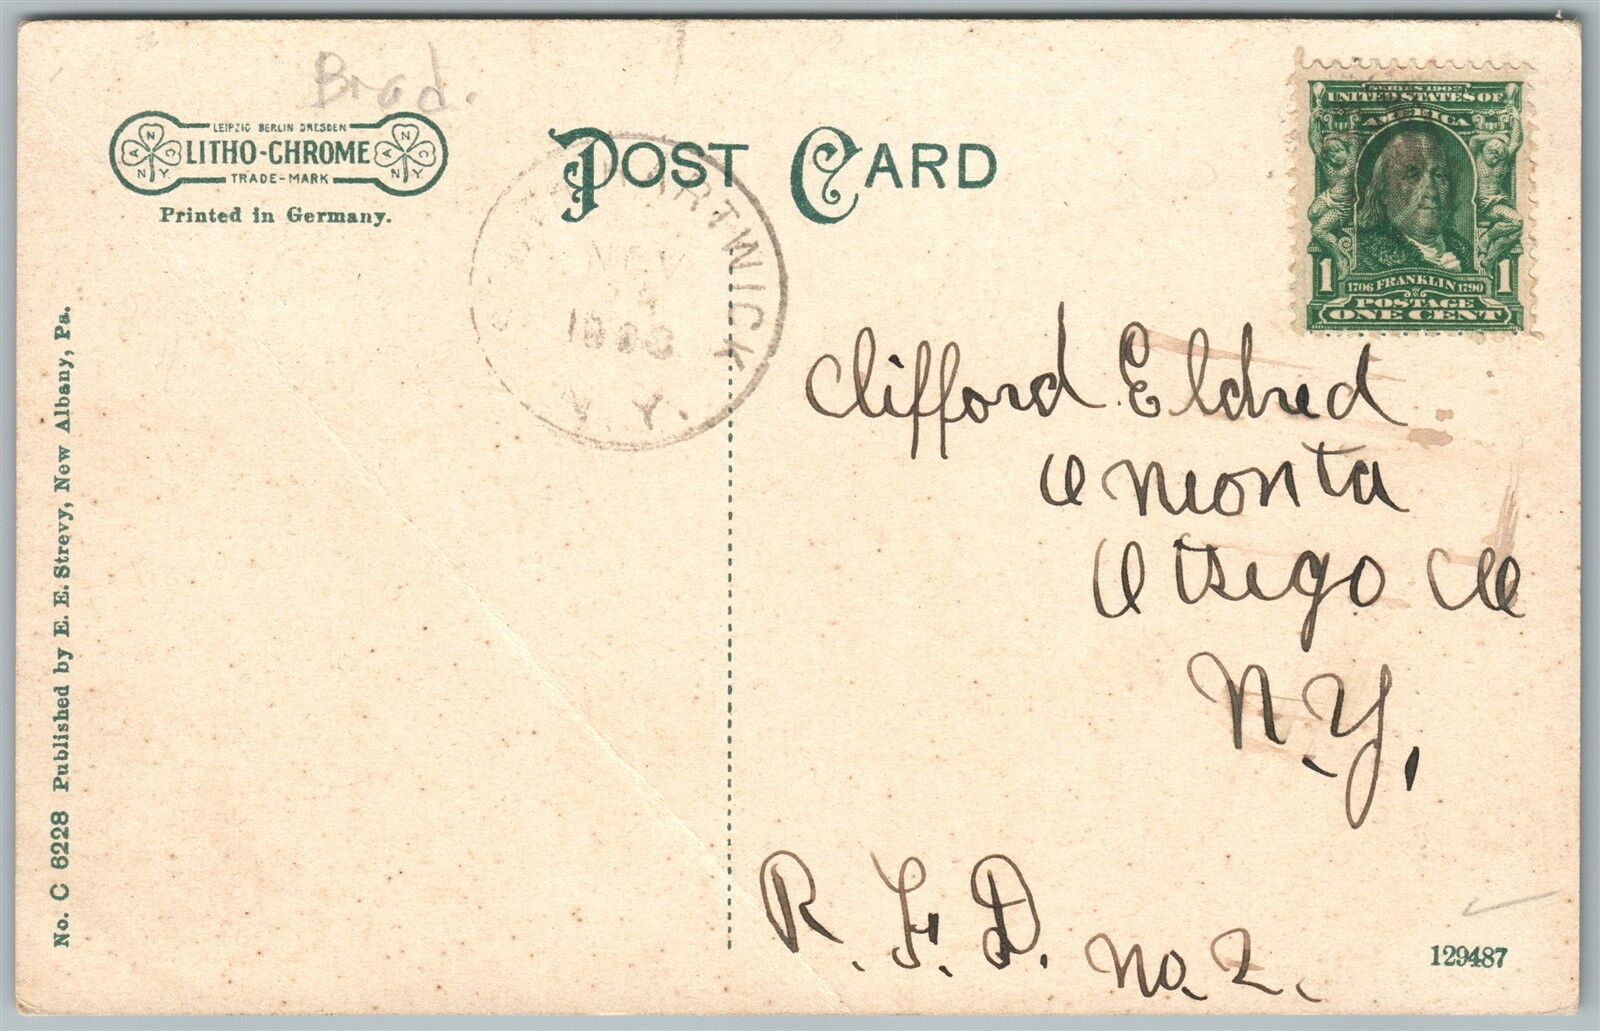 Brad.
LEIPZIG BERLIN DRESDEN
LITHO-CHROME
TRADE-MARK
Printed in Germany.
POST CARD
SOUTH HARTWICK
NOV
N.Y.
SERIES 1902
UNITED STATES OF
AMERICA
1 1
1706 FRANKLIN 1790
POSTAGE
ONE CENT
Clifford Eldred
Oneonta
Otsego Co
N.Y,
R.F.D. No. 2.
129487
No. C 6228 Published by E. E. Strevy, New Albany, Pa.